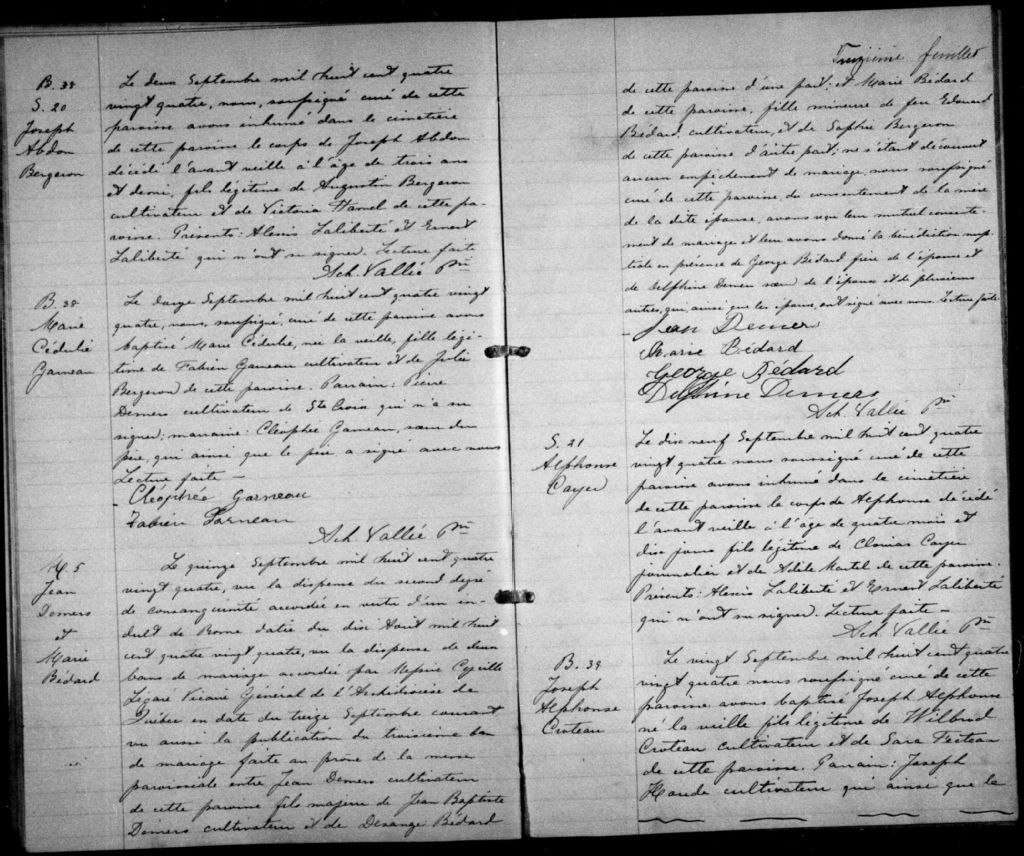 B. 38
S. 20
Joseph
Abdon
Bergeron
Le deux Septembre mil huit cent quatre
vingt quatre, nous, soussigné curé de cette
paroisse avons inhumé dans le cimetière
de cette paroisse le corps de Joseph Abdon
décédé l'avant veille à l'âge de trois ans
et demi, fils légitime de Augustin Bergeron
cultivateur et de Victoria Hamel de cette pa-
roisse. Présents: Alexis Laliberté et Ernest
Laliberté qui n'ont su signer. Lecture faite
Ach. Vallée Ptre
B. 38
Marie
Cédulie
Garneau
Le douze Septembre mil huit cent quatre vingt
quatre, nous, soussigné, curé de cette paroisse avons
baptisé Marie Cédulie, née la veille, fille légi-
time de Fabien Garneau cultivateur et de Julie
Bergeron de cette paroisse. Parrain: Pierre
Demers cultivateur de Ste Croix qui n'a su
signer; marraine: Cléophée Garneau, sœur du
père, qui ainsi que le père a signé avec nous
Lecture faite —
Cléophée Garneau
Fabien Garneau
Ach. Vallée Ptre
M. 5
Jean
Demers
et
Marie
Bédard
Le quinze Septembre mil huit cent quatre
vingt quatre, vu la dispense du second degré
de consanguinité accordée en vertu d'un in-
dult de Rome daté du dix Août mil huit
cent quatre vingt quatre, vu la dispense de deux
bans de mariage accordée par Messire Cyrille
Légaré Vicaire Général de l'Archidiocèse de
Québec en date du treize Septembre courant
vu aussi la publication du troisième ban
de mariage faite au prône de la messe
paroissiale entre Jean Demers cultivateur
de cette paroisse fils majeur de Jean Baptiste
Demers cultivateur et de Desange Bédard
Treizième feuillet
de cette paroisse d'une part; et Marie Bédard
de cette paroisse, fille mineure de feu Edouard
Bédard, cultivateur, et de Sophie Bergeron
de cette paroisse d'autre part; ne s'étant découvert
aucun empêchement de mariage, nous soussigné
curé de cette paroisse, du consentement de la mère
de la dite épouse, avons reçu leur mutuel consente-
ment de mariage et leur avons donné la bénédiction nup-
tiale en présence de George Bédard frère de l'épouse et
de Delphine Demers sœur de l'époux et de plusieurs
autres, qui, ainsi que les époux, ont signé avec nous. Lecture faite
Jean Demers
Marie Bédard
George Bédard
Delphine Demers
Ach. Vallée Ptre
S. 21
Alphonse
Cayer
Le dix neuf Septembre mil huit cent quatre
vingt quatre nous soussigné curé de cette
paroisse avons inhumé dans le cimetière
de cette paroisse le corps de Alphonse décédé
l'avant veille à l'âge de quatre mois et
dix jours fils légitime de Cayer
journalier et de Adèle Martel de cette paroisse.
Présents: Alexis Laliberté et Ernest Laliberté
qui n'ont su signer. Lecture faite —
Ach. Vallée Ptre
B. 39
Joseph
Alphonse
Croteau
Le vingt Septembre mil huit cent quatre
vingt quatre nous soussigné curé de cette
paroisse avons baptisé Joseph Alphonse
né la veille fils légitime de Wilbrod
Croteau cultivateur et de Sara Fecteau
de cette paroisse. Parrain: Joseph
Houde cultivateur qui ainsi que la